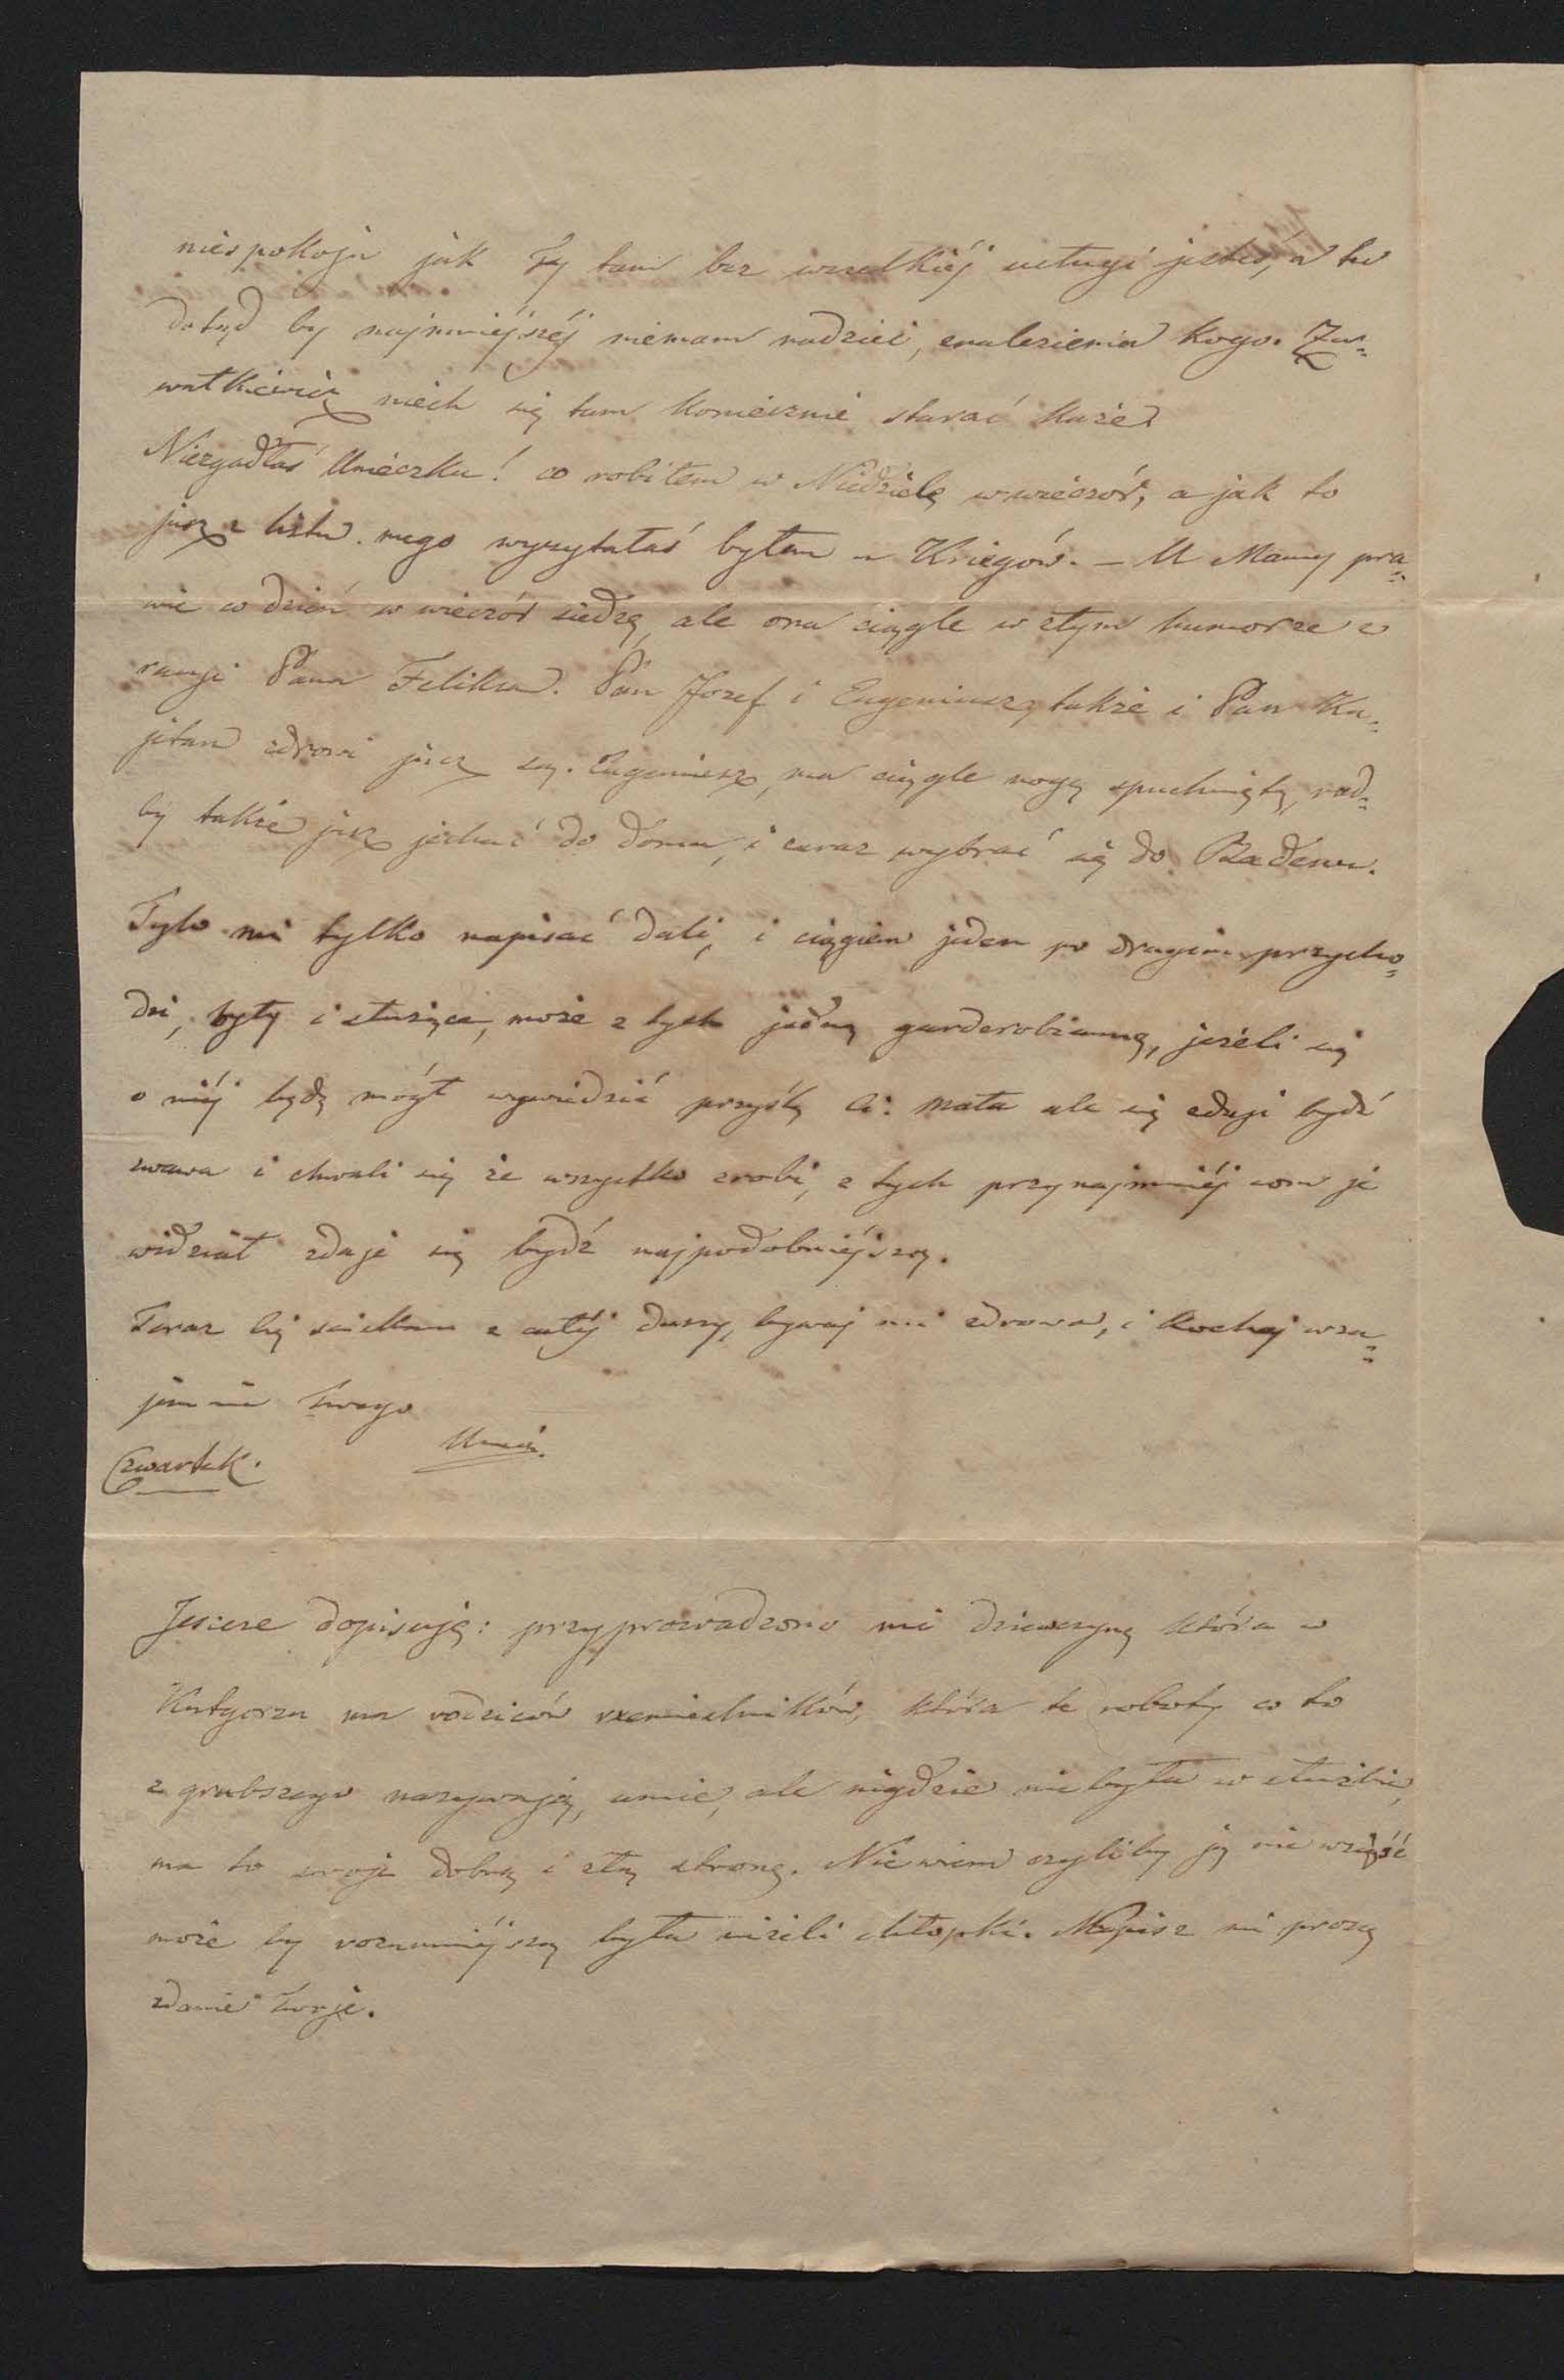 niespokoju jak Ty tam bez wszelkiéj usługi jesteś, a tu
dotąd by najmniéjszéj niemam nadziei, znalezienia kogo. Za=
wałkiewicz niech się tam koniecznie starać każe
Niezgadłaś Unieczku! co robiłem w Niedzielę wwieczór, a jak to
już z listu mego wyczytałaś byłem u Kriegów. — U Mamy pra=
wie co dzień w wieczór siedzę, ale ona ciągle w złym humorze z
racyi Pana Feliksa. Pan Jozef i Eugeniusz, także i Pan Ka=
jetan zdrowi już są. Eugeniusz, ma ciągle nogę spuchniętą, rad=
by także już jechać do domu, i zaraz wybrać się do Badenu.
Tylo mi tylko napisać dali, i ciągiem jeden po drugim przycho=
dzi, były i służące, może z tych jedną garderobianną, jeżeli się
o niéj będę mógł wywiedzić przyślę Ci: mała ale się zdaji bydź
żwawa i chwali się że wszystko zrobi, z tych przynajmniéj com je
widział zdaje się bydź najpodobniéjszą.
Teraz Cię sciskam z całéj duszy, bywaj mi zdrowa, i kochaj wza=
jemnie Twego
Czwartek.
Jescze dopisuję: przyprowadzono mi dziewczynę która w
Kutyorzu ma rodziców rzemieslników, która te roboty co to
z grubszego nazywają, umie, ale nigdzie nie była w służbie,
ma to swoje dobrą i złą stronę. Niewiem czyliby ją nie wziąść
może by rozumniéjszą była niżeli chłopki. Napisz mi proszę
zdanie twoje.